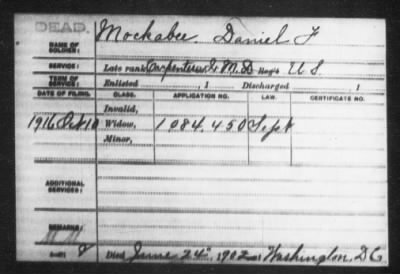 DEAD.
NAME OF SOLDIER: Mockabee Daniel F
SERVICE: Late rank Carpenter Q M D Reg't U S.
TERM OF SERVICE: Enlisted , 1 Discharged , 1
DATE OF FILING. CLASS. APPLICATION NO. LAW. CERTIFICATE NO.
Invalid,
1916 Oct 10 Widow, 1084,450 Sept
Minor,
ADDITIONAL SERVICES:
REMARKS:
Died June 24", 1902 at Washington, D C